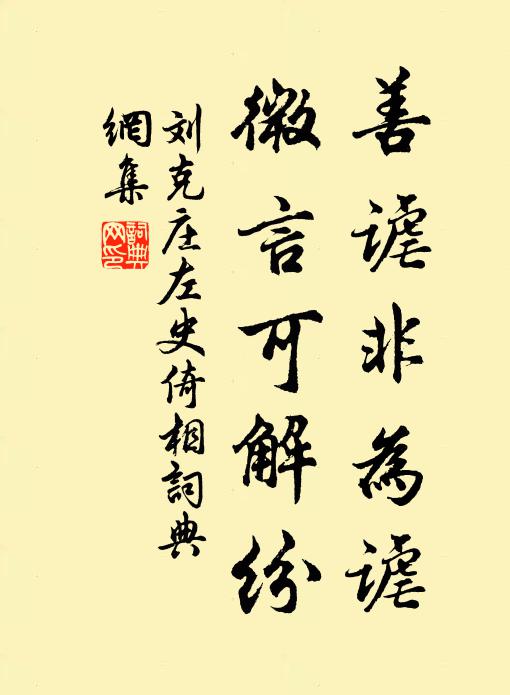 善謔非為謔
微言可解紛
刘克庄左史倚相詞典
網集
詞典
网印